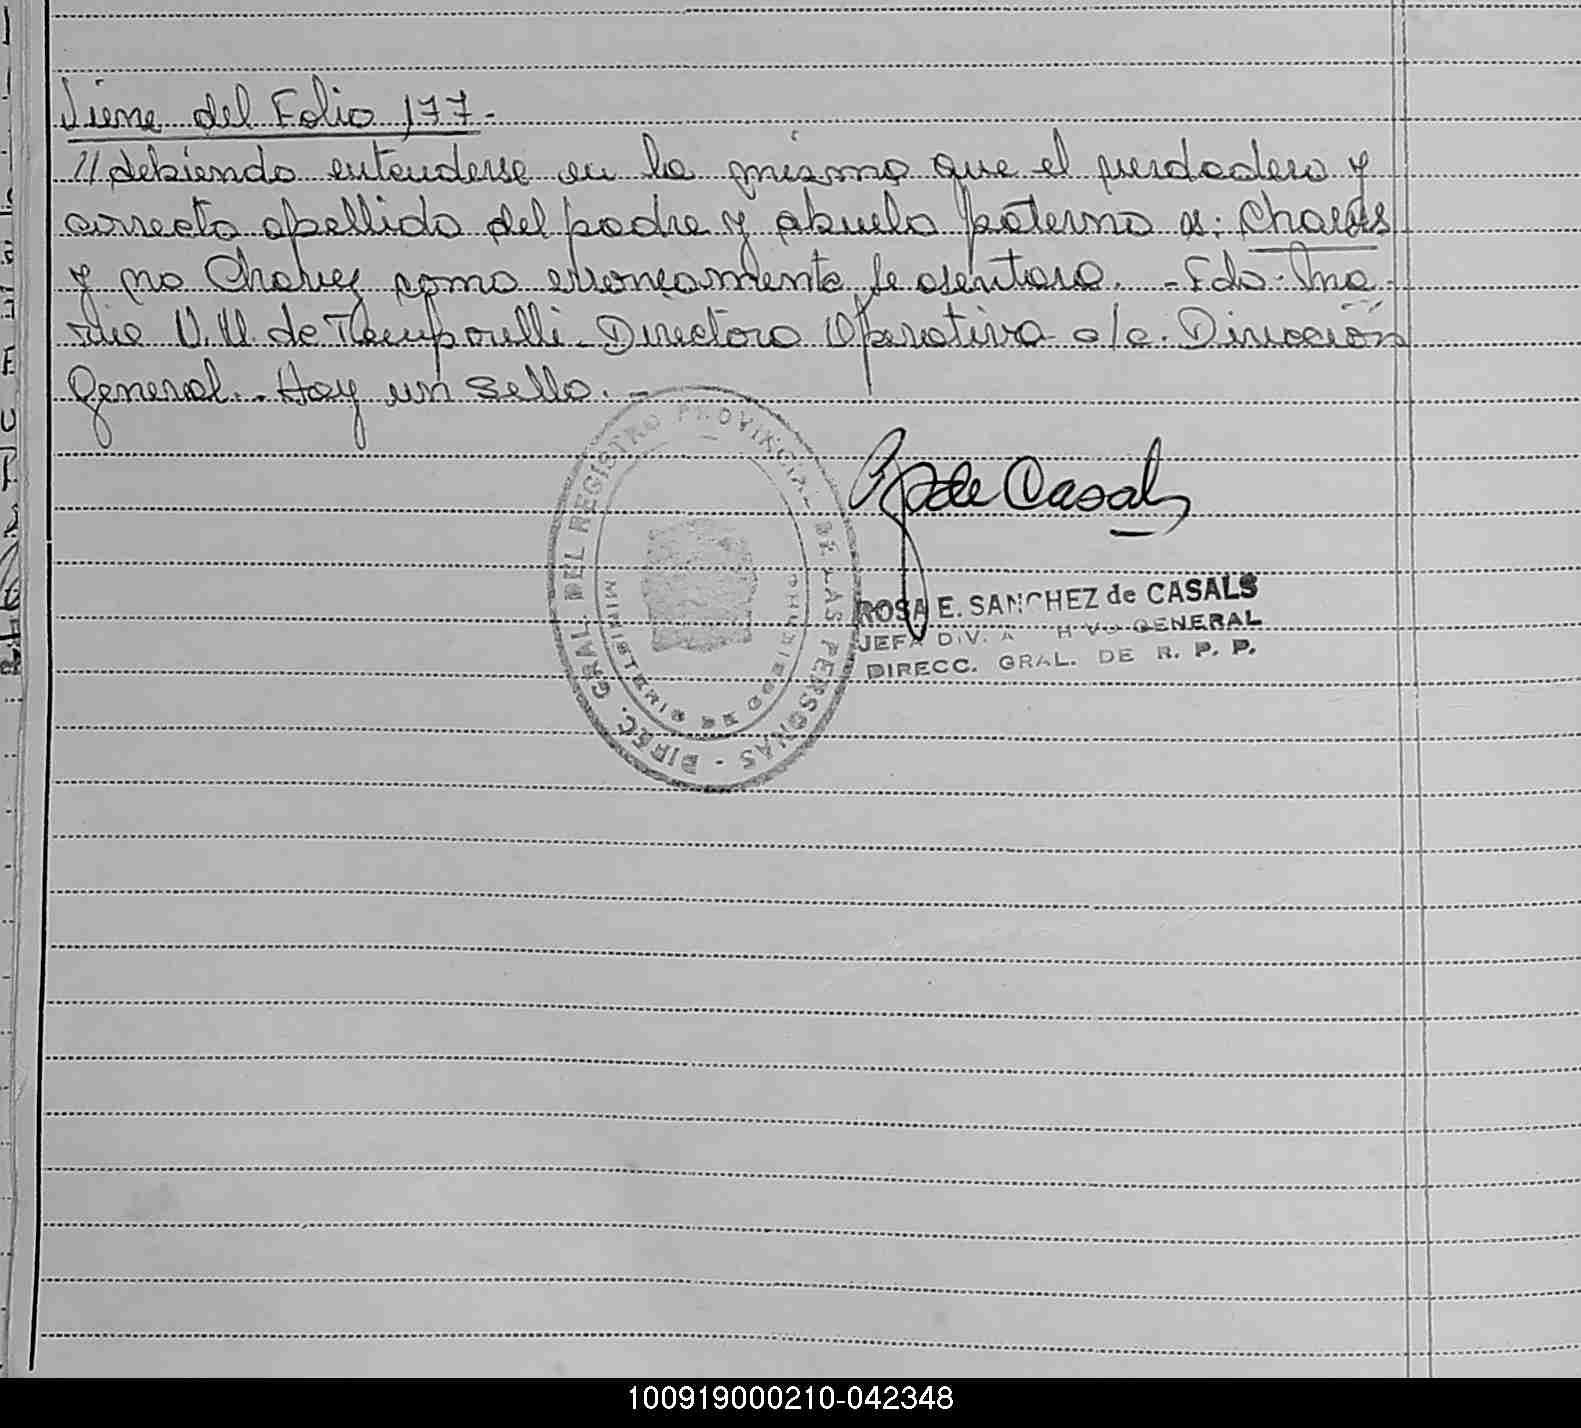 Viene del Folio 177.-
// debiendo entenderse en la misma que el verdadero y
correcto apellido del padre y abuelo paterno es: Chaves
y no Chavez como erroneamente se asentara. - Fdo. Ma-
ria U. U. de Temporelli - Directora Operativa a/c. Dirección
General.. Hay un sello. -
R S de Casals
DIREC. GRAL. DEL REGISTRO PROVINCIAL DE LAS PERSONAS -
MINISTERIO DE GOBIERNO
ROSA E. SANCHEZ de CASALS
JEFA DIV. GENERAL
DIRECC. GRAL. DE R. P. P.
100919000210-042348